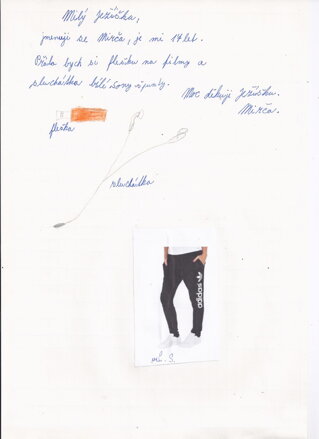 Milý Ježíšku,
jmenuji se Mirča, je mi 17 let.
bych si flešku na filmy a
sluchátka bílé Sony
Moc děkuji Ježíšku.
Mirča.
fleška
sluchátka
adidas
vel. S.